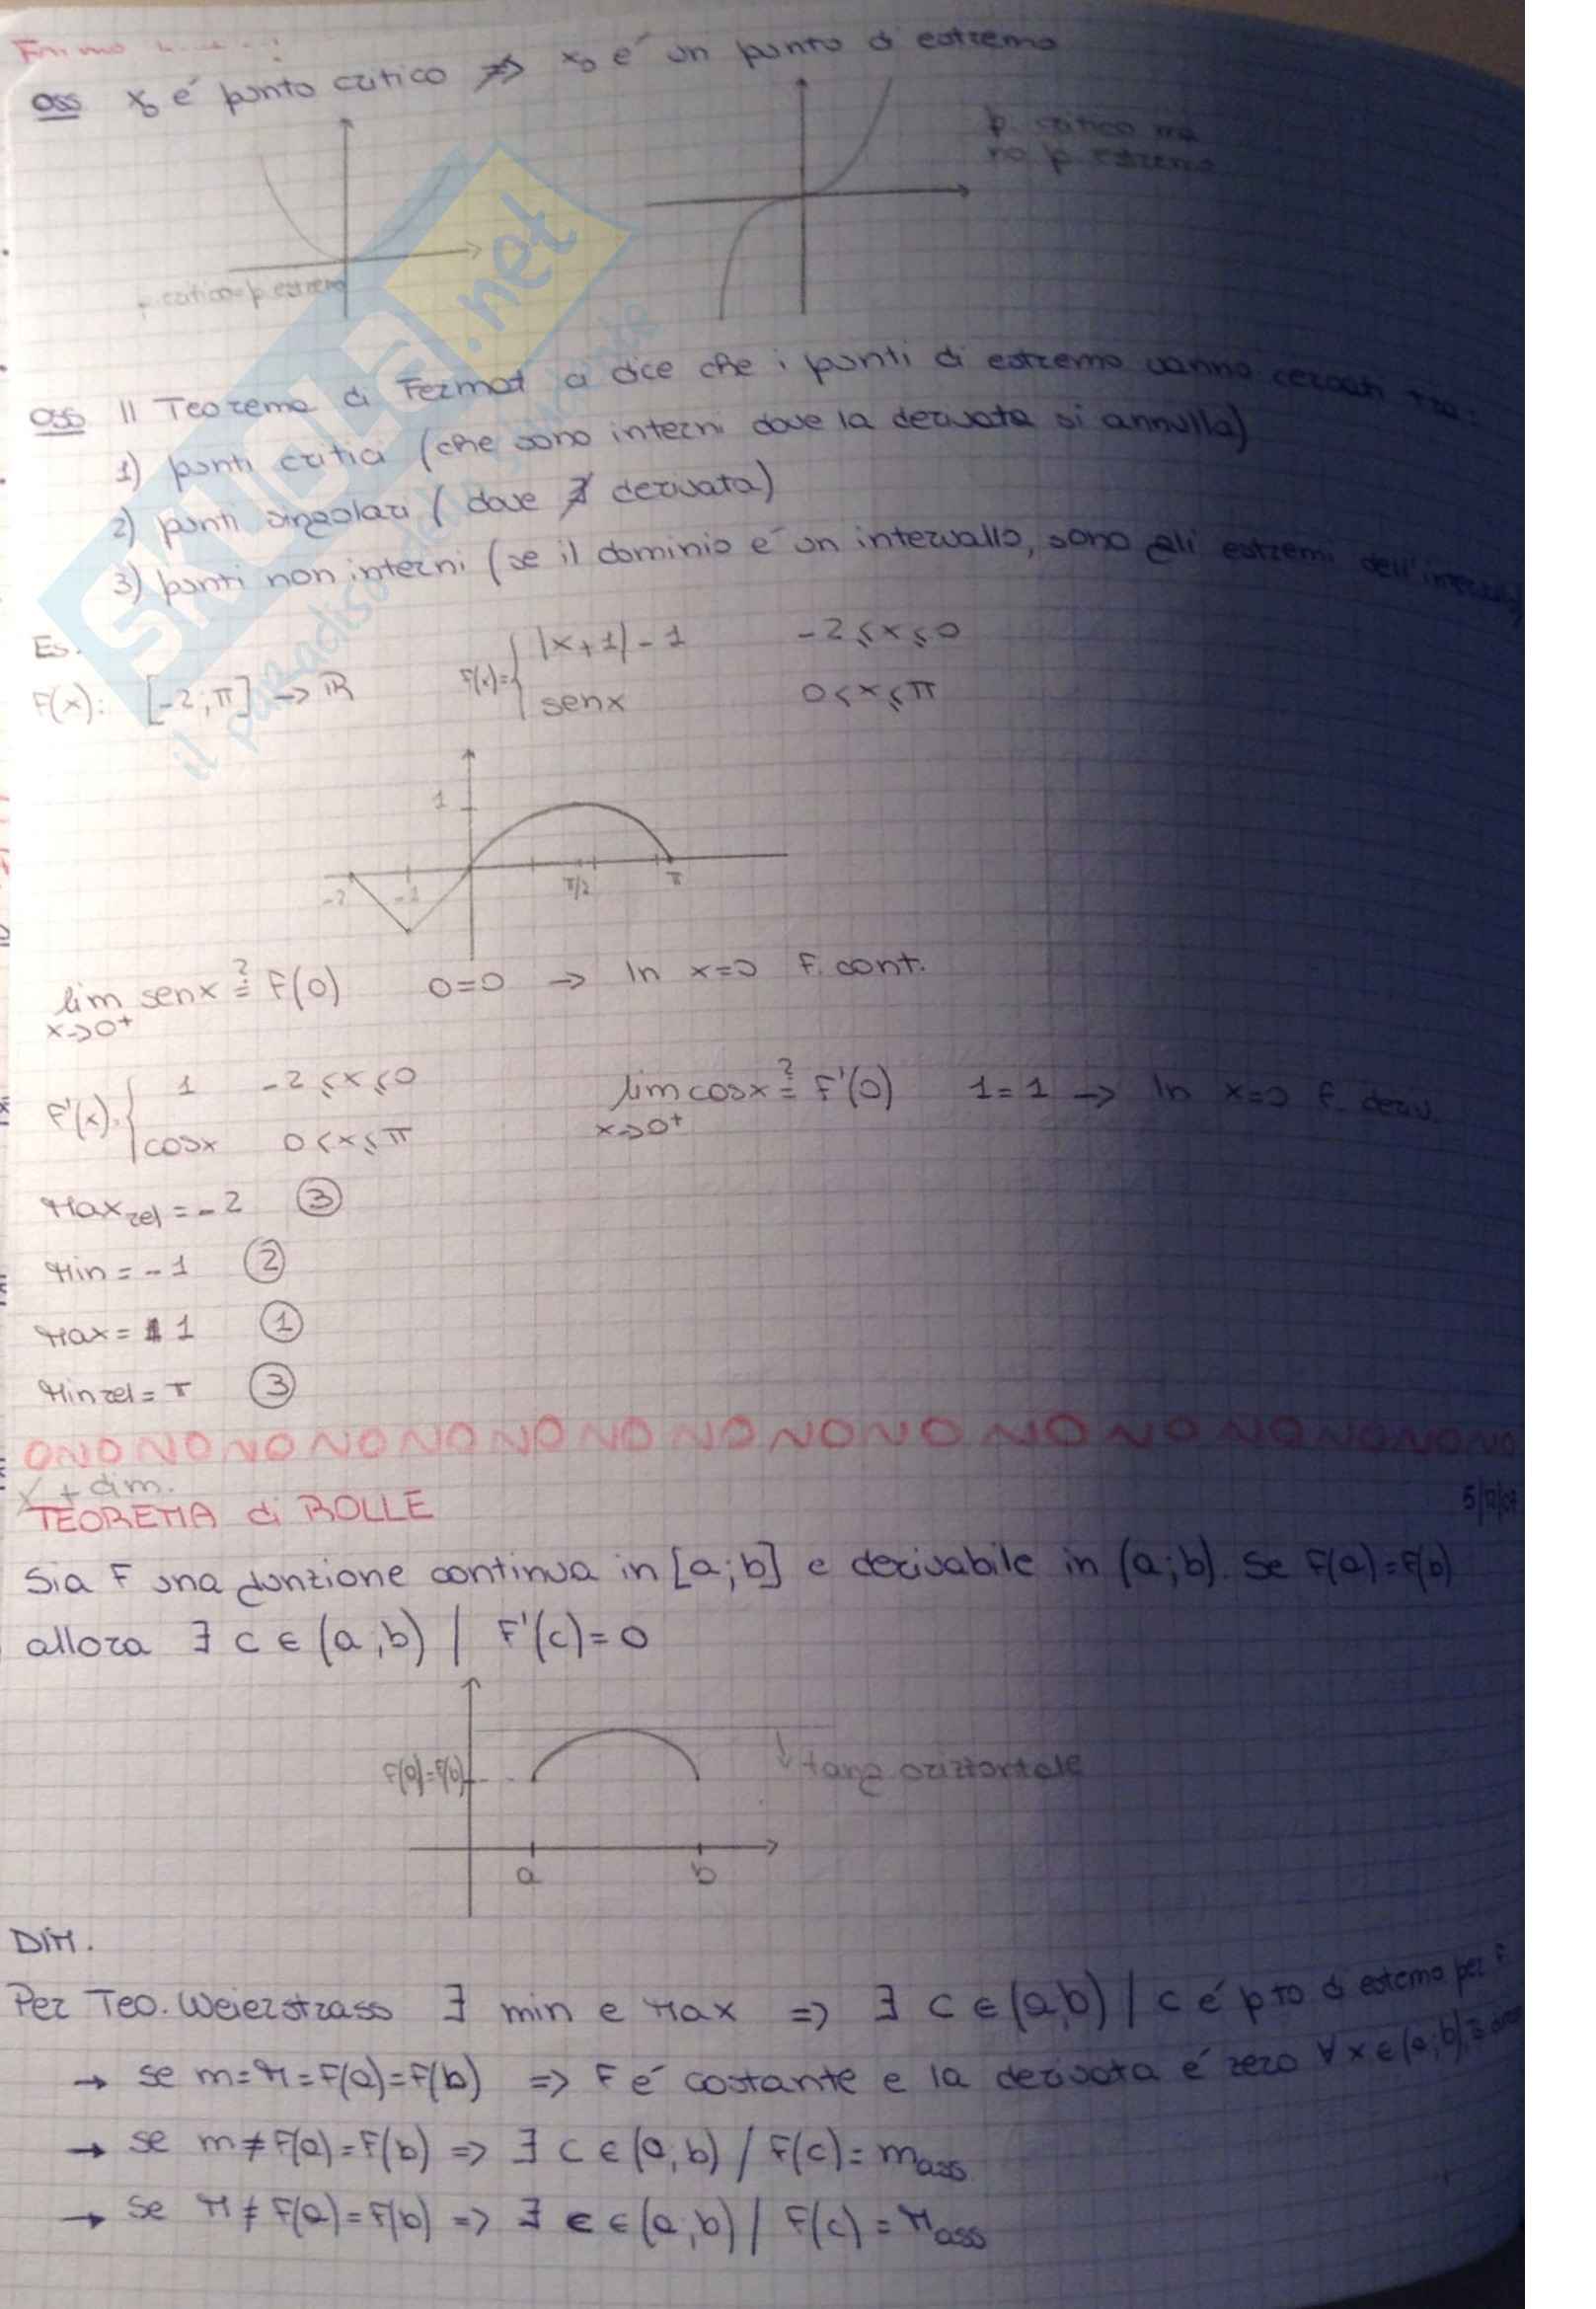 Oss x₀ é punto critico ⇏ x₀ é un punto di estremo
p. critico ma
no p. estremo
p. critico = p. estremo
Oss Il Teorema di Fermat ci dice che i punti di estremo vanno cercati tra:
1) punti critici (che sono interni dove la derivata si annulla)
2) punti singolari (dove ∄ derivata)
3) punti non interni (se il dominio é un intervallo, sono gli estremi dell'intervallo)
Es.
F(x): [-2; π] → ℝ F(x)= { |x+1|-1 -2⩽x⩽0
senx 0<x⩽π
1
-2 -1 π/2 π
lim senx ≟ F(0) 0=0 → In x=0 F. cont.
x→0⁺
F'(x): { 1 -2⩽x⩽0 lim cosx ≟ F'(0) 1=1 → In x=0 F. deriv.
cosx 0<x⩽π x→0⁺
Max rel = -2 ③
Min = -1 ②
Max = 1 ①
Min rel = π ③
ONO NO NO NO NO NO NO NO NO NO NO NO NO NO NO NO
+ dim.
TEOREMA di ROLLE
Sia F una funzione continua in [a; b] e derivabile in (a; b). Se F(a)=F(b)
allora ∃ c ∈ (a, b) / F'(c)=0
F(a)=F(b)
↓ tang orizzontale
a b
DIM.
Per Teo. Weierstrass ∃ min e Max ⇒ ∃ c ∈ (a,b) / c é pto di estremo per F
→ se m=M=F(a)=F(b) ⇒ F é costante e la derivata é zero ∀ x ∈ (a; b)
→ se m≠F(a)=F(b) ⇒ ∃ c ∈ (a, b) / F(c)= m ass
→ se M≠F(a)=F(b) ⇒ ∃ c ∈ (a, b) / F(c) = M ass
SKUOLA.net
il paradiso dello studente